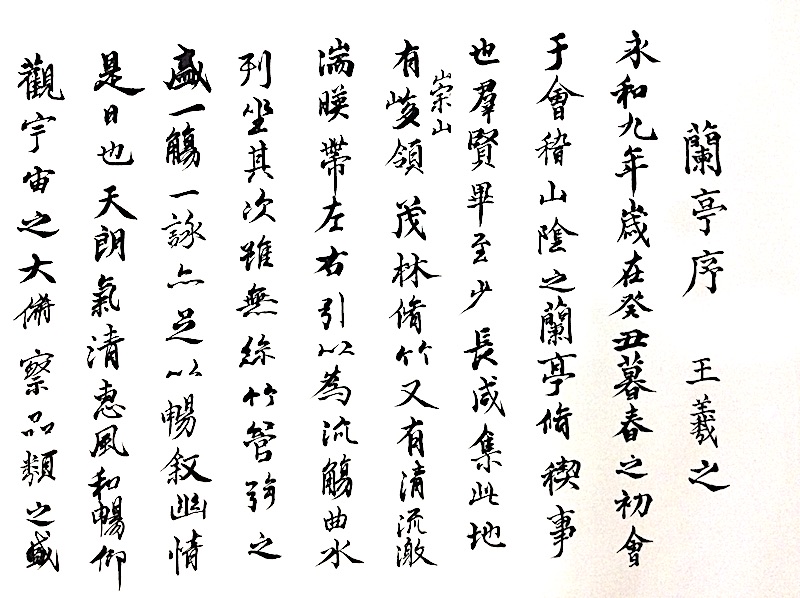 蘭亭序 王羲之
永和九年歲在癸丑暮春之初會
于會稽山陰之蘭亭脩稧事
也羣賢畢至少長咸集此地
有崇山峻領茂林脩竹又有清流激
湍暎帶左右引以為流觴曲水
列坐其次雖無絲竹管弦之
盛一觴一詠亦足以暢叙幽情
是日也天朗氣清惠風和暢仰
觀宇宙之大俯察品類之盛